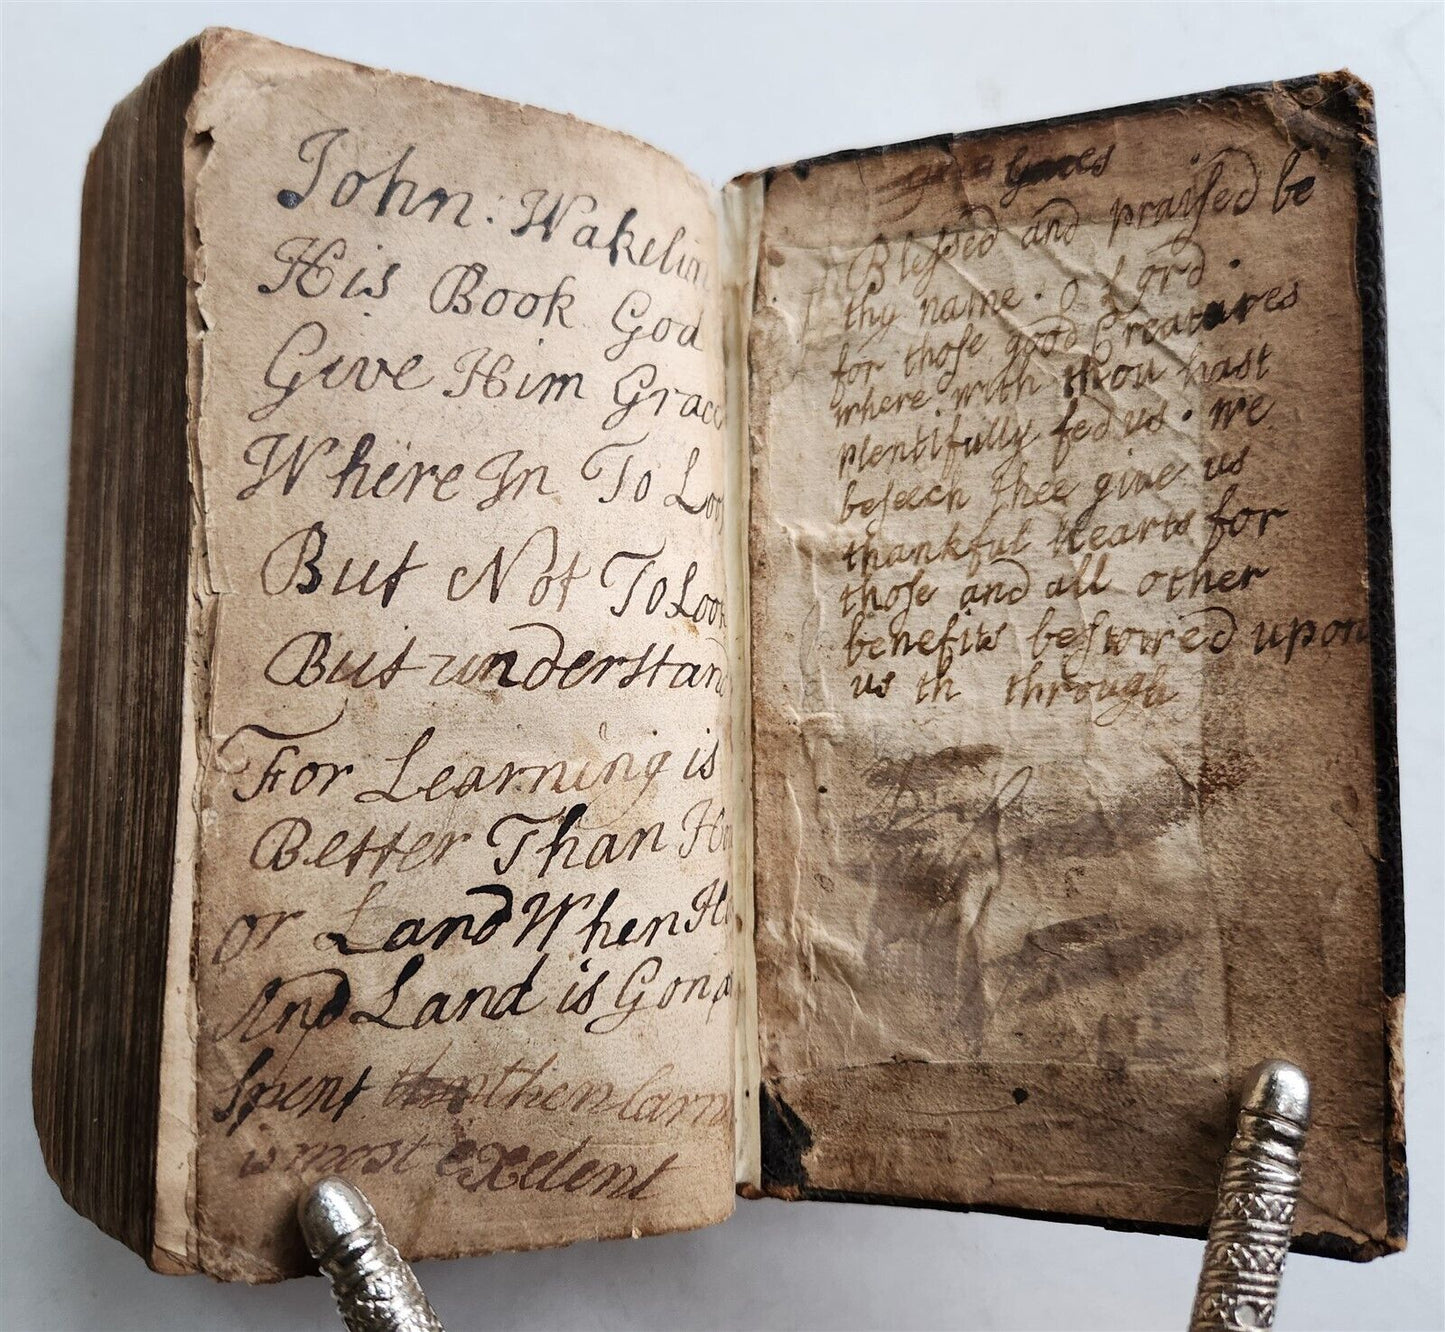 John: Wakelin
His Book God
Give Him Grace
Where In To Look
But Not To Look
But understand
For Learning is
Better Than
or Land When
And Land is Gon
Spent then larn
is most exelent
Graces
Blessed and praised be
thy name . o Lord .
for those good Creatures
where with thou hast
plentifully fed us . we
beseech thee give us
thankful Hearts for
those and all other
benefits bestowed upon
us th through